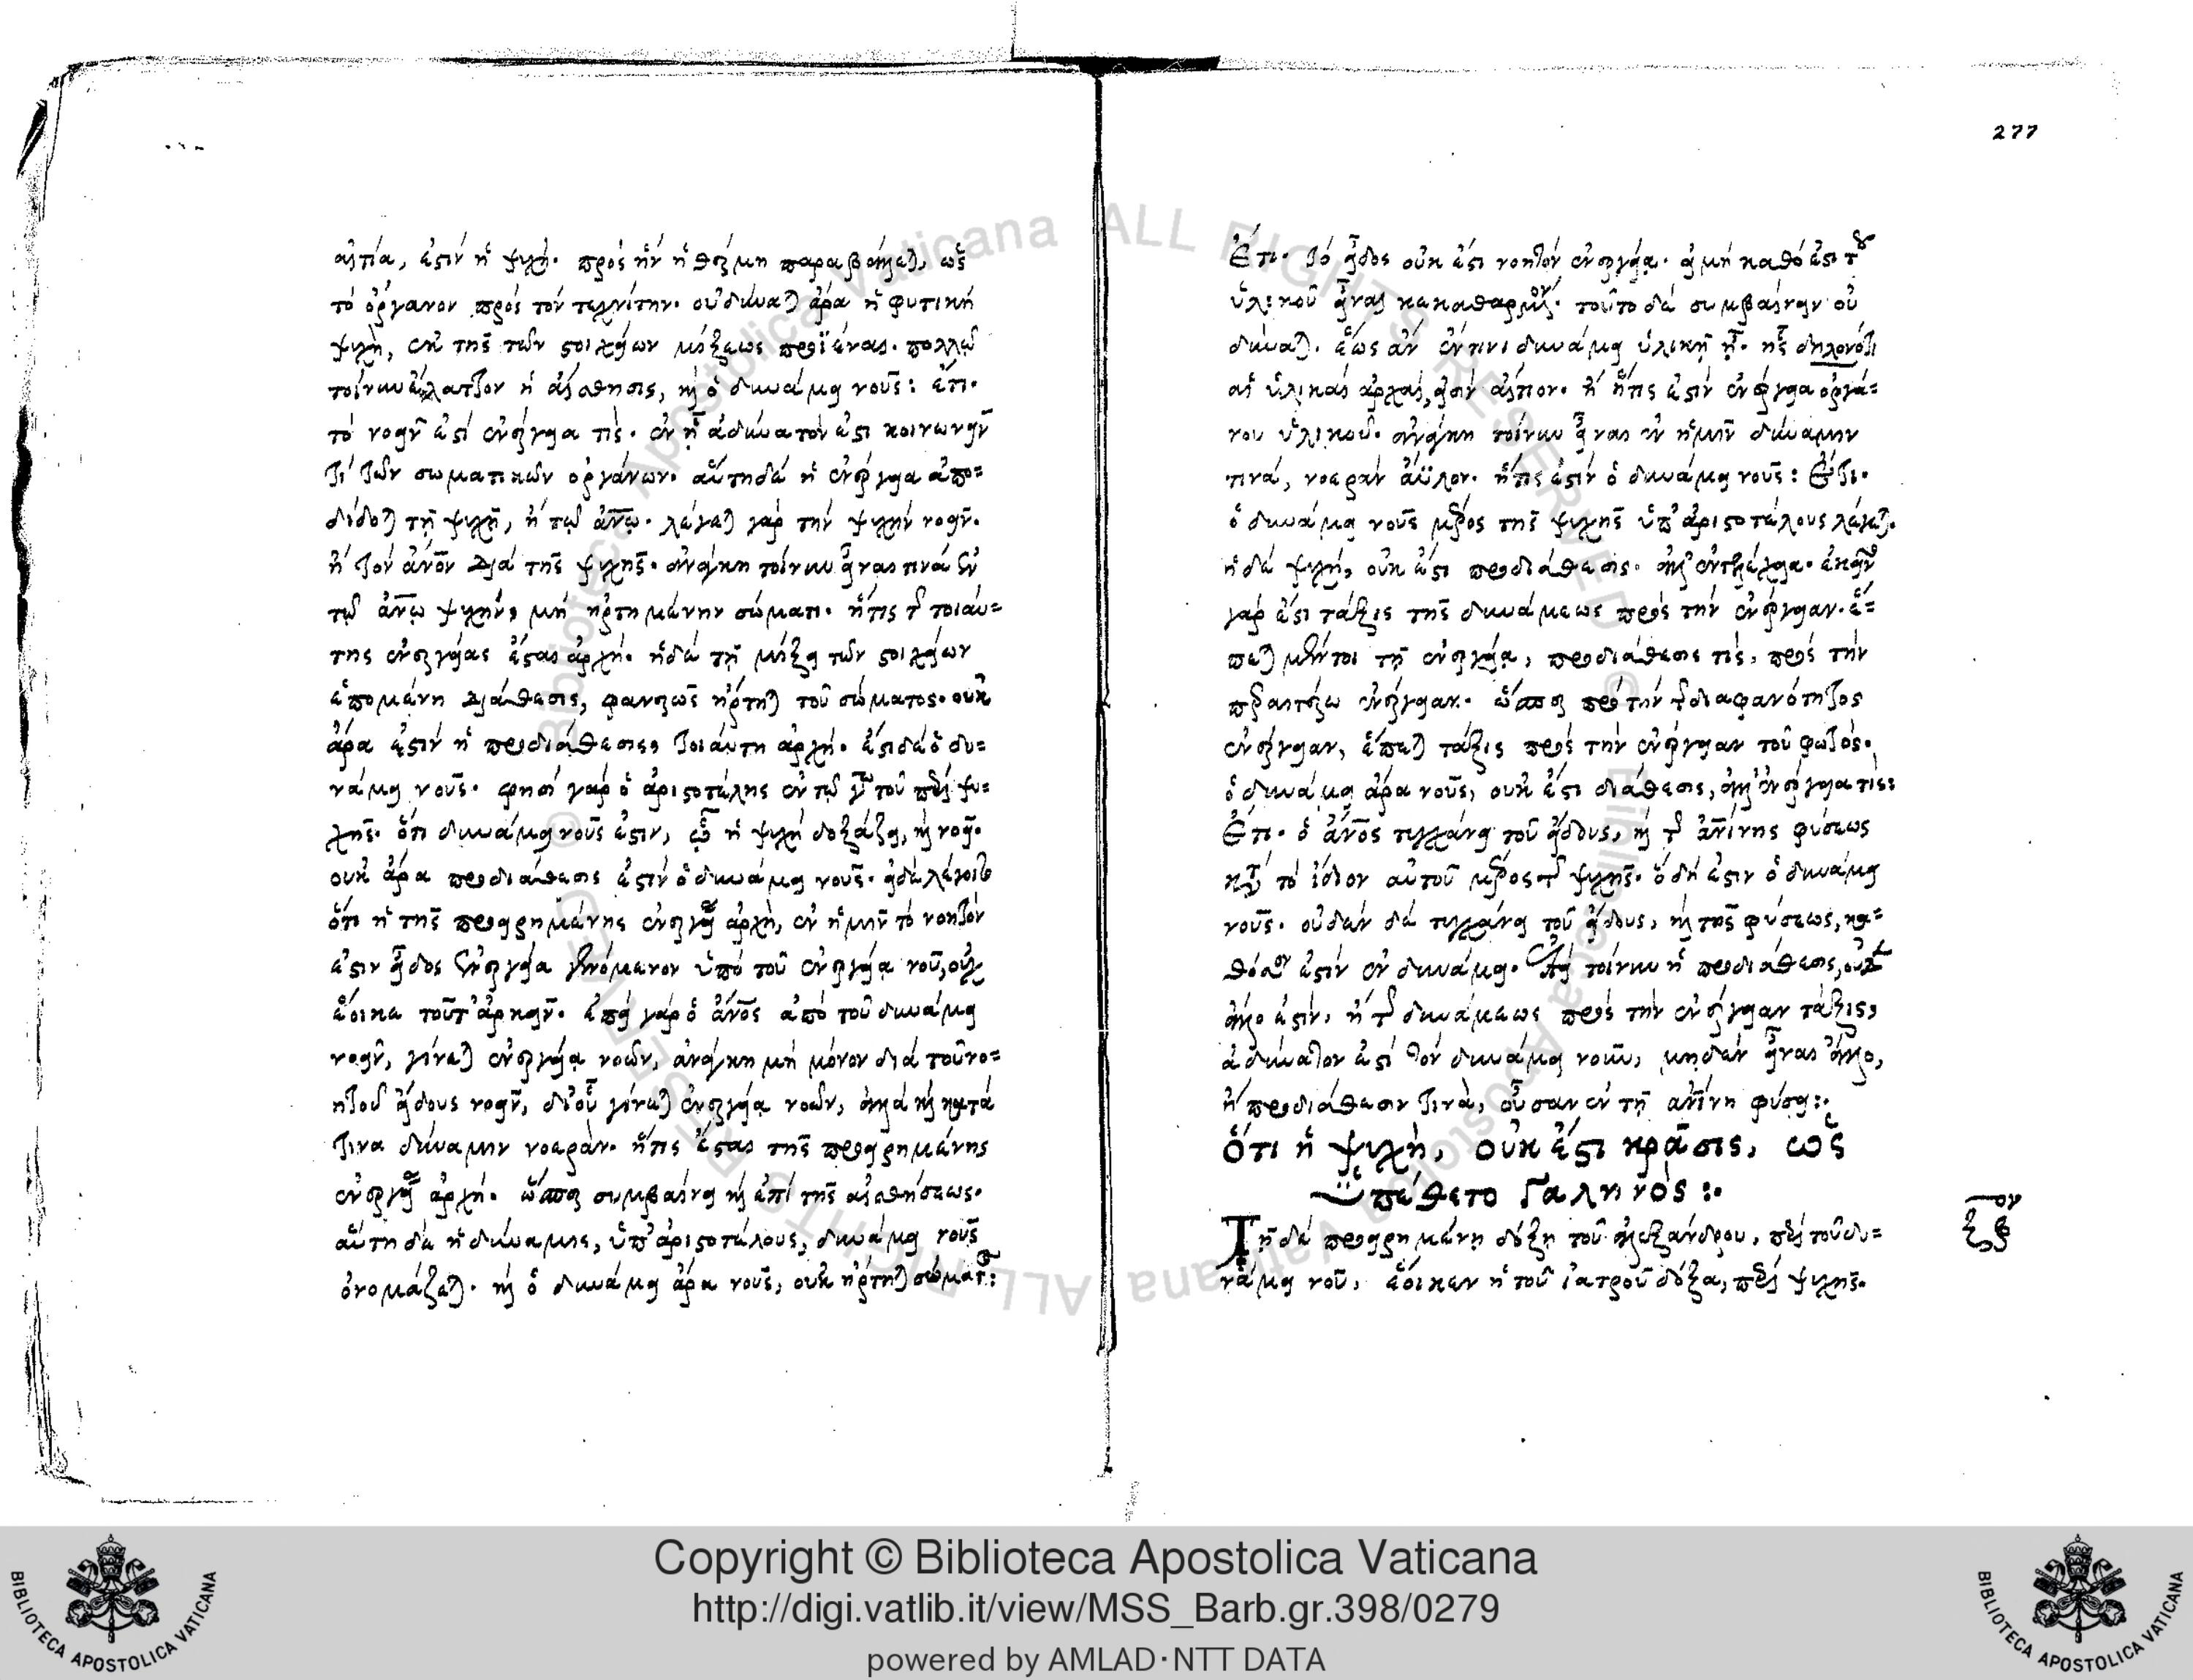 αἰτία, ἐστὶν ἡ ψυχή. πρὸς ἣν ἡ θέρμη παραβάλλεται, ὡς
τὸ ὄργανον πρὸς τὸν τεχνίτην. οὐ δύναται ἄρα ἡ φυτικὴ
ψυχὴ, ἐκ τῆς τῶν στοιχείων μίξεως προϊέναι. πολλῷ
τοίνυν ἔλαττον ἡ αἴσθησις, καὶ ὁ δυνάμει νοῦς: ἔτι.
τὸ νοεῖν ἐστὶ ἐνέργεια τίς. ἐν ᾗ ἀδύνατον ἐστι κοινωνεῖν
τὶ τῶν σωματικῶν ὀργάνων. αὕτη δὲ ἡ ἐνέργεια ἀπο=
δίδοται τῇ ψυχῇ, ἢ τῷ ἀνῳ. λέγεται γὰρ τὴν ψυχὴν νοεῖν.
ἢ τὸν ἀνον διὰ τῆς ψυχῆς. ἀνάγκη τοίνυν εἶναι τινὰ ἐν
τῷ ἀνω ψυχὴν, μὴ ἠρτημένην σώματι. ἥτις τῆς τοιαύ=
της ἐνεργείας ἔσται ἀρχή. ἡ δὲ τῇ μίξει τῶν στοιχείων
ἑπομένη διάθεσις, φανερῶς ἤρτηται τοῦ σώματος. οὐκ
ἄρα ἐστὶν ἡ προδιάθεσις, τοιαύτη ἀρχή. ἔστι δὲ ὁ δυ=
νάμει νοῦς. φησὶ γὰρ ὁ ἀριστοτέλης ἐν τῷ γω τοῦ περὶ ψυ=
χῆς. ὅτι δυνάμει νοῦς ἐστιν, ᾧ ἡ ψυχὴ δοξάζει, καὶ νοεῖ.
οὐκ ἄρα προδιάθεσις ἐστὶν ὁ δυνάμει νοῦς. εἰ δὲ λέγοιτο
ὅτι ἡ τῆς προειρημένης ἐνεργείας ἀρχὴ, ἐν ἡμῖν τὸ νοητὸν
ἐστιν εἶδος ἐνεργείᾳ γινόμενον ὑπὸ τοῦ ἐνεργείᾳ νοῦ, οὐχ
ἔοικε τοῦτ' ἀρκεῖν. ἐπεὶ γὰρ ὁ ἀνος ἀπὸ τοῦ δυνάμει
νοεῖν, γίνεται ἐνεργείᾳ νοῶν, ἀνάγκη μὴ μόνον διὰ τοῦ νο=
ητοῦ εἴδους νοεῖν, δι' οὗ γίνεται ἐνεργείᾳ νοῶν, ἀλλὰ καὶ κατὰ
τινα δύναμιν νοεράν. ἥτις ἔσται τῆς προειρημένης
ἐνεργείας ἀρχή. ὥσπερ συμβαίνει καὶ ἐπὶ τῆς αἰσθήσεως.
αὕτη δὲ ἡ δύναμις, ὑπ' ἀριστοτέλους, δυνάμει νοῦς
ὀνομάζεται. καὶ ὁ δυνάμει ἄρα νοῦς, οὐκ ἤρτηται σώματος:
277
Ἔτι. τὸ εἶδος οὐκ ἔστι νοητὸν ἐνεργείᾳ. εἰ μὴ καθό ἐστι τοῦ
ὑλικοῦ εἶναι κεκαθαρμένον. τοῦτο δὲ συμβαίνειν οὐ
δύναται. ἕως ἂν ἔν τινι δυνάμει ὑλικῇ ᾖ. ἧς δηλονότι
αἱ ὑλικαὶ ἀρχαὶ, εἰσὶν αἴτιον. ἢ ἥτις ἐστὶν ἐνέργεια ὀργά=
νου ὑλικοῦ. ἀνάγκη τοίνυν εἶναι ἐν ἡμῖν δύναμιν
τινὰ, νοερὰν ἄϋλον. ἥτις ἐστὶν ὁ δυνάμει νοῦς: Ἔτι.
ὁ δυνάμει νοῦς μέρος τῆς ψυχῆς ὑπ' ἀριστοτέλους λέγεται.
ἡ δὲ ψυχὴ, οὐκ ἔστι προδιάθεσις. ἀλλ' ἐντελέχεια. ἐκείνη
γὰρ ἐστι τάξις τῆς δυνάμεως πρὸς τὴν ἐνέργειαν. ἕ=
πεται μέντοι τῇ ἐνεργείᾳ, προδιάθεσις τὶς, πρὸς τὴν
περαιτέρω ἐνέργειαν. ὥσπερ πρὸ τὴν τ διαφανότητος
ἐνέργειαν, ἕπεται τάξις πρὸς τὴν ἐνέργειαν τοῦ φωτός.
ὁ δυνάμει ἄρα νοῦς, οὐκ ἔστι διάθεσις, ἀλλ' ἐνέργεια τίς:
Ἔτι. ὁ ἀνος τυγχάνει τοῦ εἴδους, καὶ τῆς ἀνίνης φύσεως
κατὰ τὸ ἴδιον αὐτοῦ μέρος τῆς ψυχῆς. ὃ δή ἐστιν ὁ δυνάμει
νοῦς. οὐδὲν δὲ τυγχάνει τοῦ εἴδους, καὶ τῆς φύσεως, κα=
θόσον ἐστὶν ἐν δυνάμει. Ἐπεὶ τοίνυν ἡ προδιάθεσις, οὐδὲν
ἄλλο ἐστὶν, ἢ τῆς δυνάμεως πρὸς τὴν ἐνέργειαν τάξις,
ἀδύνατον ἐστὶ τὸν δυνάμει νοῦν, μηδὲν εἶναι ἄλλο,
ἢ προδιάθεσιν τινὰ, οὖσαν ἐν τῇ ἀνίνῃ φύσει:
ὅτι ἡ ψυχὴ, οὐκ ἔστι κρᾶσις, ὡς
ὑπέθετο Γαληνός:
Τῇ δὲ προειρημένῃ δόξῃ τοῦ ἀλεξάνδρου, περὶ τοῦ δυ=
νάμει νοῦ, ἔοικεν ἡ τοῦ ἰατροῦ δόξα, περὶ ψυχῆς.
ξβον
Copyright © Biblioteca Apostolica Vaticana
http://digi.vatlib.it/view/MSS_Barb.gr.398/0279
powered by AMLAD·NTT DATA